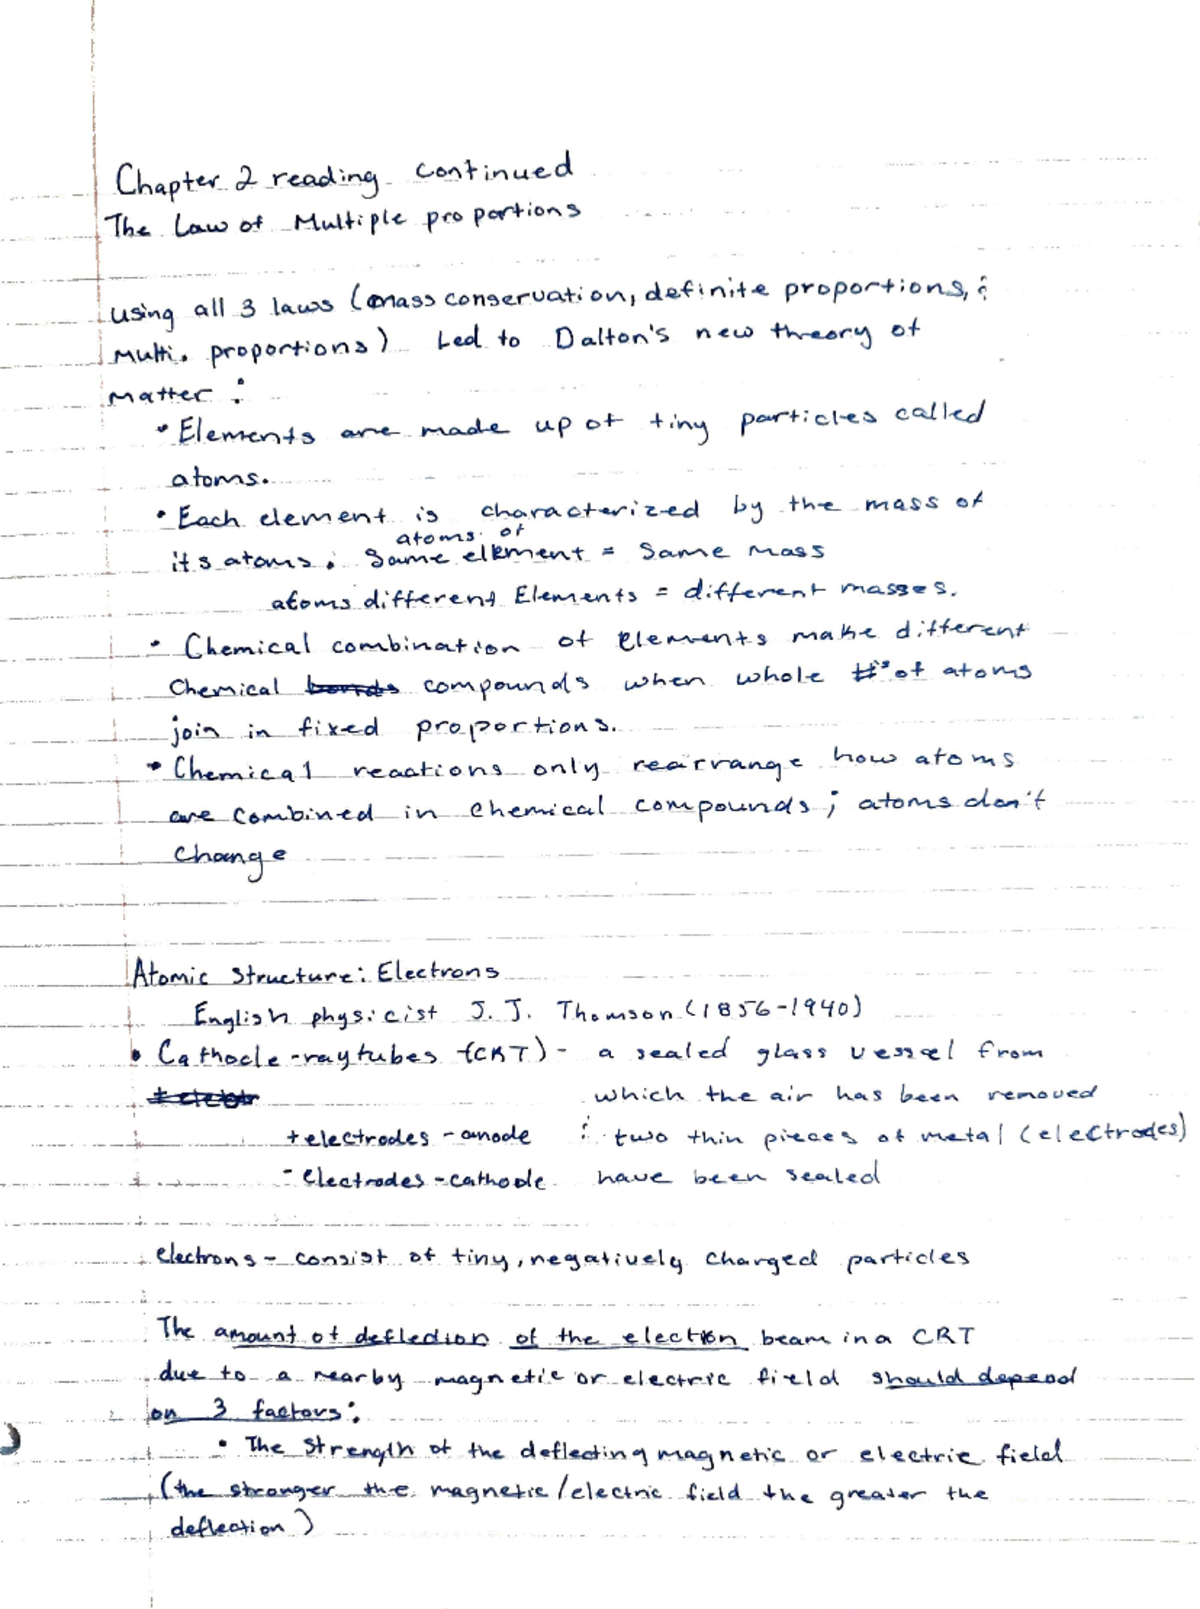 Chapter 2 reading continued
The Law of Multiple proportions
using all 3 laws (mass conservation, definite proportions, &
Multi. proportions) Led to Dalton's new theory of
Matter :
• Elements are made up of tiny particles called
atoms.
• Each element is characterized by the mass of
atoms of
its atoms. Same element = Same mass
atoms different Elements = different masses.
• Chemical combination of elements make different
Chemical bonds compounds when whole #s of atoms
join in fixed proportions.
• Chemical reactions only rearrange how atoms
are combined in chemical compounds; atoms don't
change
Atomic Structure: Electrons
English physicist J. J. Thomson (1856-1940)
• Cathode-ray tubes (CRT) - a sealed glass vessel from
which the air has been removed
+ electrodes - anode & two thin pieces of metal (electrodes)
- Electrodes - cathode have been sealed
electrons - consist of tiny, negatively charged particles
The amount of deflection of the electron beam in a CRT
due to a nearby magnetic or electric field should depend
on 3 factors:
• The strength of the deflecting magnetic or electric field
(the stronger the magnetic/electric field the greater the
deflection)